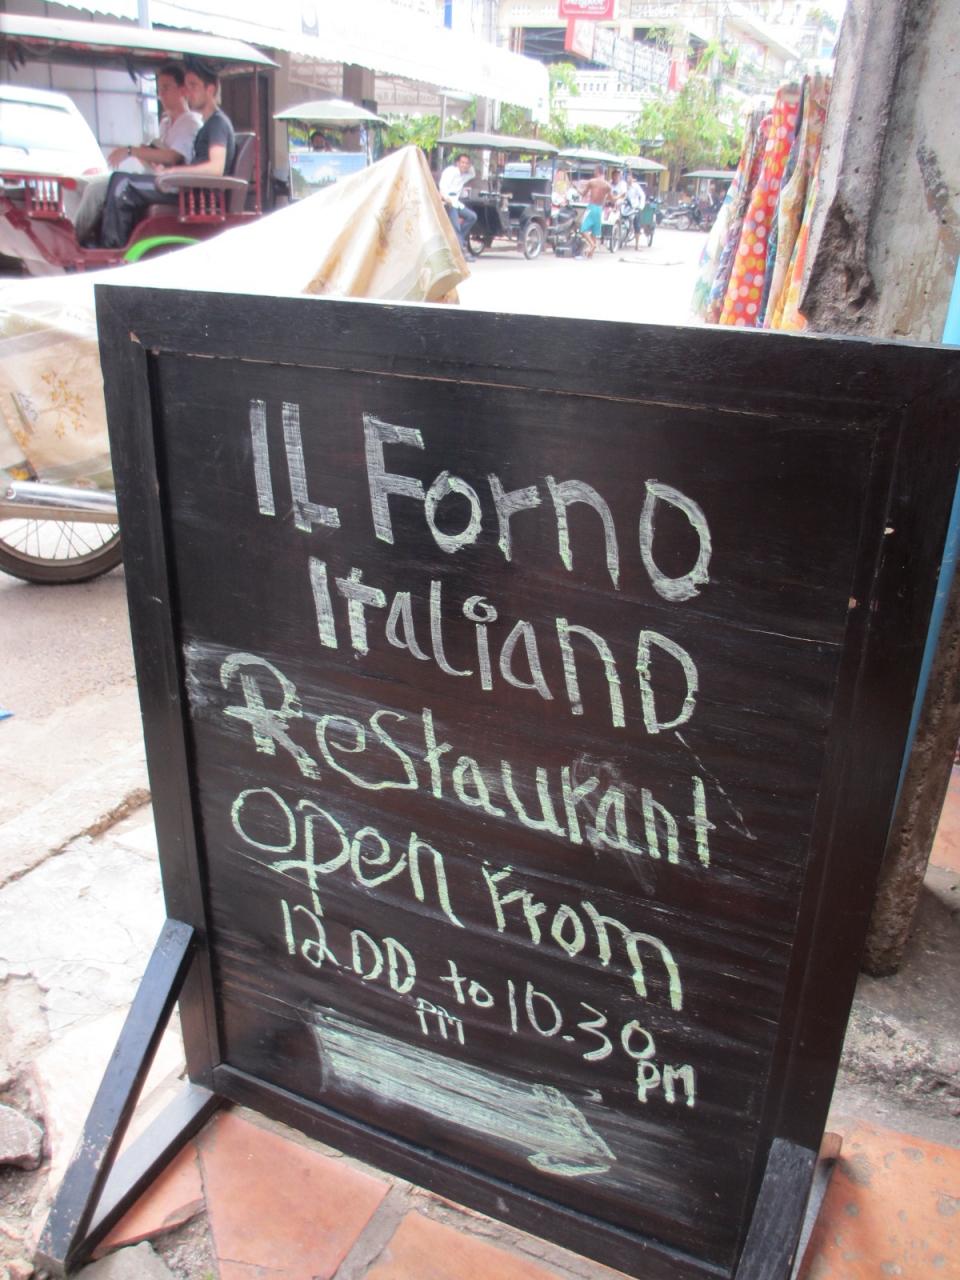 IL Forno
Italiano
Restaurant
Open From
12.00 to 10.30
PM PM